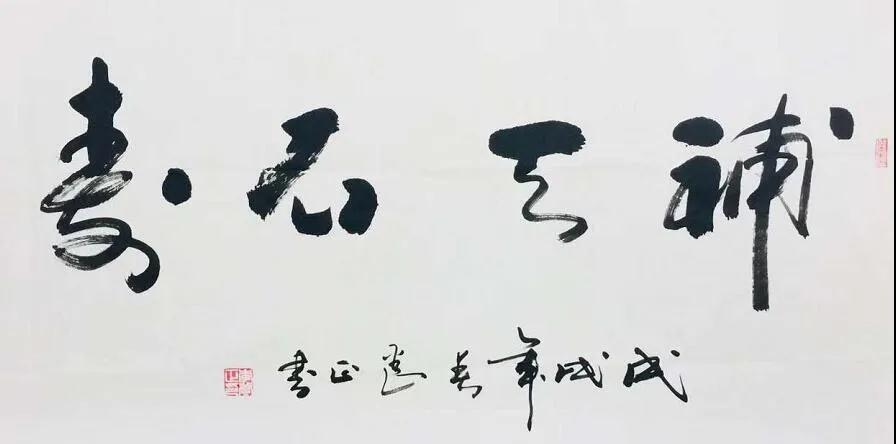 補天石壽
戊戌年春正書